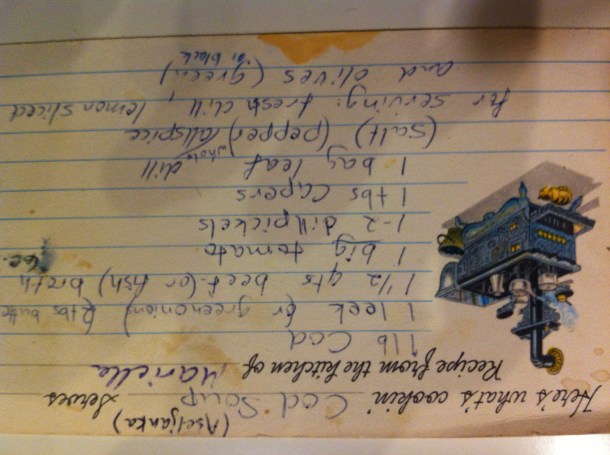 (Aseljanka)
Here's what's cookin' Cod Soup Serves
Recipe from the kitchen of Mariella
1 lb Cod
1 leek (or green onion) 2 tbs butte
1 1/2 qts beef (or fish) broth
1 big tomato
1-2 dill pickels
1 tbs Capers
1 bay leaf whole dill
(Salt) (pepper) (allspice
for serving: fresh dill, lemon sliced
and olives (green or black)